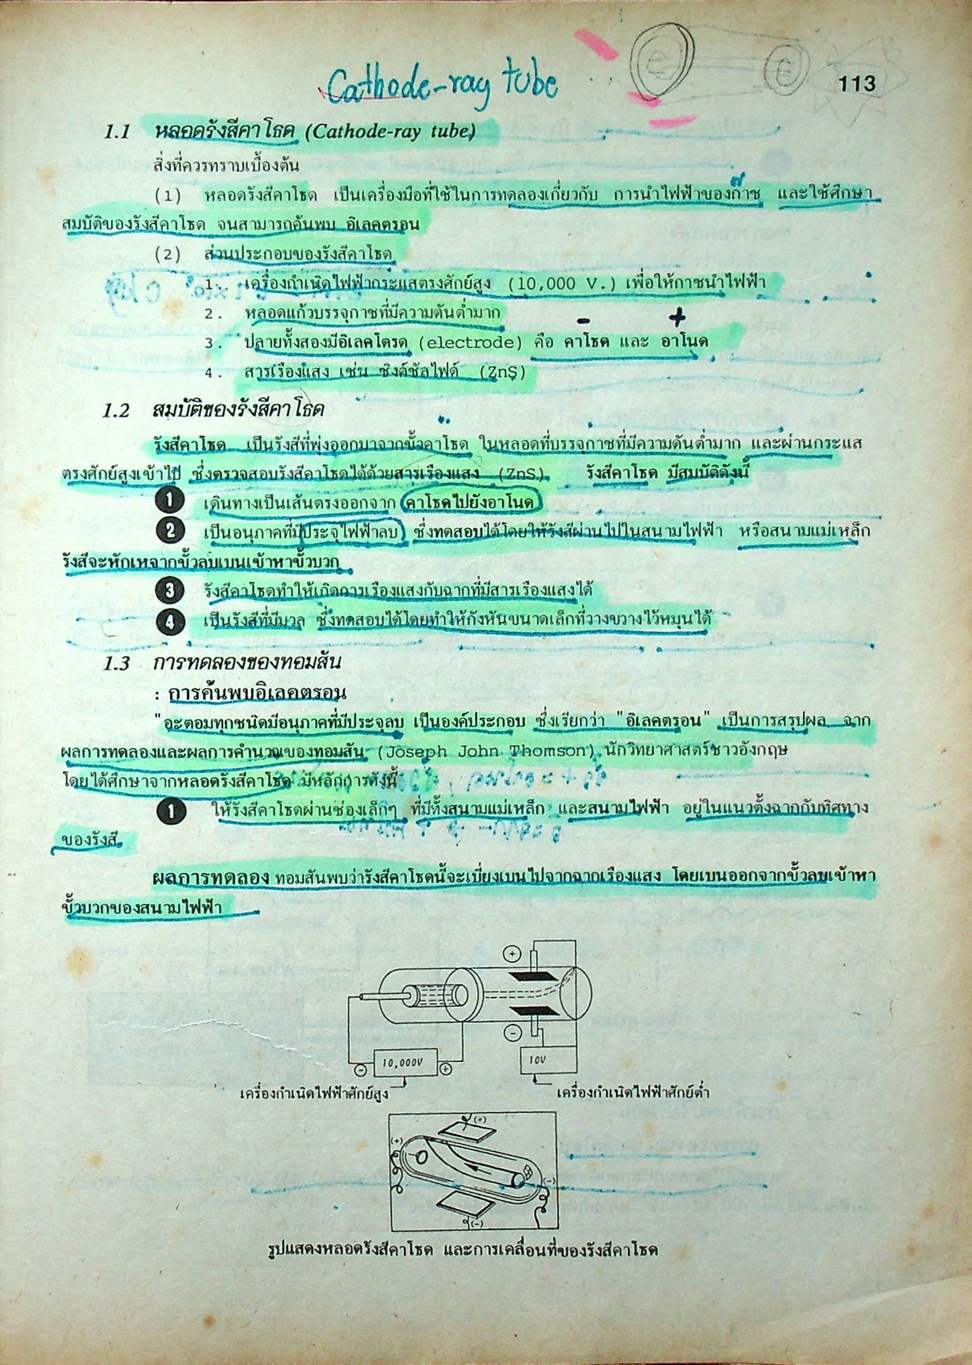 Cathode-ray tube
113
1.1 หลอดรังสีคาโธด (Cathode-ray tube)
สิ่งที่ควรทราบเบื้องต้น
(1) หลอดรังสีคาโธด เป็นเครื่องมือที่ใช้ในการทดลองเกี่ยวกับ การนำไฟฟ้าของก๊าซ และใช้ศึกษา
สมบัติของรังสีคาโธด จนสามารถค้นพบ อิเลคตรอน
(2) ส่วนประกอบของรังสีคาโธด
1. เครื่องกำเนิดไฟฟ้ากระแสตรงศักย์สูง (10,000 V.) เพื่อให้กาซนำไฟฟ้า
2. หลอดแก้วบรรจุกาซที่มีความดันต่ำมาก
- +
3. ปลายทั้งสองมีอิเลคโตรด (electrode) คือ คาโธด และ อาโนด
4. สารเรืองแสง เช่น ซิงค์ซัลไฟด์ (ZnS)
1.2 สมบัติของรังสีคาโธด
รังสีคาโธด เป็นรังสีที่พุ่งออกมาจากขั้วคาโธด ในหลอดที่บรรจุกาซที่มีความดันต่ำมาก และผ่านกระแส
ตรงศักย์สูงเข้าไป ซึ่งตรวจสอบรังสีคาโธดได้ด้วยสารเรืองแสง (ZnS) รังสีคาโธด มีสมบัติดังนี้
1 เดินทางเป็นเส้นตรงออกจาก คาโธดไปยังอาโนด
2 เป็นอนุภาคที่มีประจุไฟฟ้าลบ ซึ่งทดสอบได้โดยให้รังสีผ่านไปในสนามไฟฟ้า หรือสนามแม่เหล็ก
รังสีจะหักเหจากขั้วลบเบนเข้าหาขั้วบวก
3 รังสีคาโธดทำให้เกิดการเรืองแสงกับฉากที่มีสารเรืองแสงได้
4 เป็นรังสีที่มีมวล ซึ่งทดสอบได้โดยทำให้กังหันขนาดเล็กที่วางขวางไว้หมุนได้
1.3 การทดลองของทอมสัน
: การค้นพบอิเลคตรอน
"อะตอมทุกชนิดมีอนุภาคที่มีประจุลบ เป็นองค์ประกอบ ซึ่งเรียกว่า "อิเลคตรอน" เป็นการสรุปผล จาก
ผลการทดลองและผลการคำนวณของทอมสัน (Joseph John Thomson) นักวิทยาศาสตร์ชาวอังกฤษ
โดยได้ศึกษาจากหลอดรังสีคาโธด มีหลักการดังนี้
1 ให้รังสีคาโธดผ่านช่องเล็กๆ ที่มีทั้งสนามแม่เหล็ก และสนามไฟฟ้า อยู่ในแนวตั้งฉากกับทิศทาง
ของรังสี
ผลการทดลอง ทอมสันพบว่ารังสีคาโธดนี้จะเบี่ยงเบนไปจากฉากเรืองแสง โดยเบนออกจากขั้วลบเข้าหา
ขั้วบวกของสนามไฟฟ้า
+
-
- 10,000V + 10V
เครื่องกำเนิดไฟฟ้าศักย์สูง เครื่องกำเนิดไฟฟ้าศักย์ต่ำ
(+)
(+)
(-)
(-)
รูปแสดงหลอดรังสีคาโธด และการเคลื่อนที่ของรังสีคาโธด